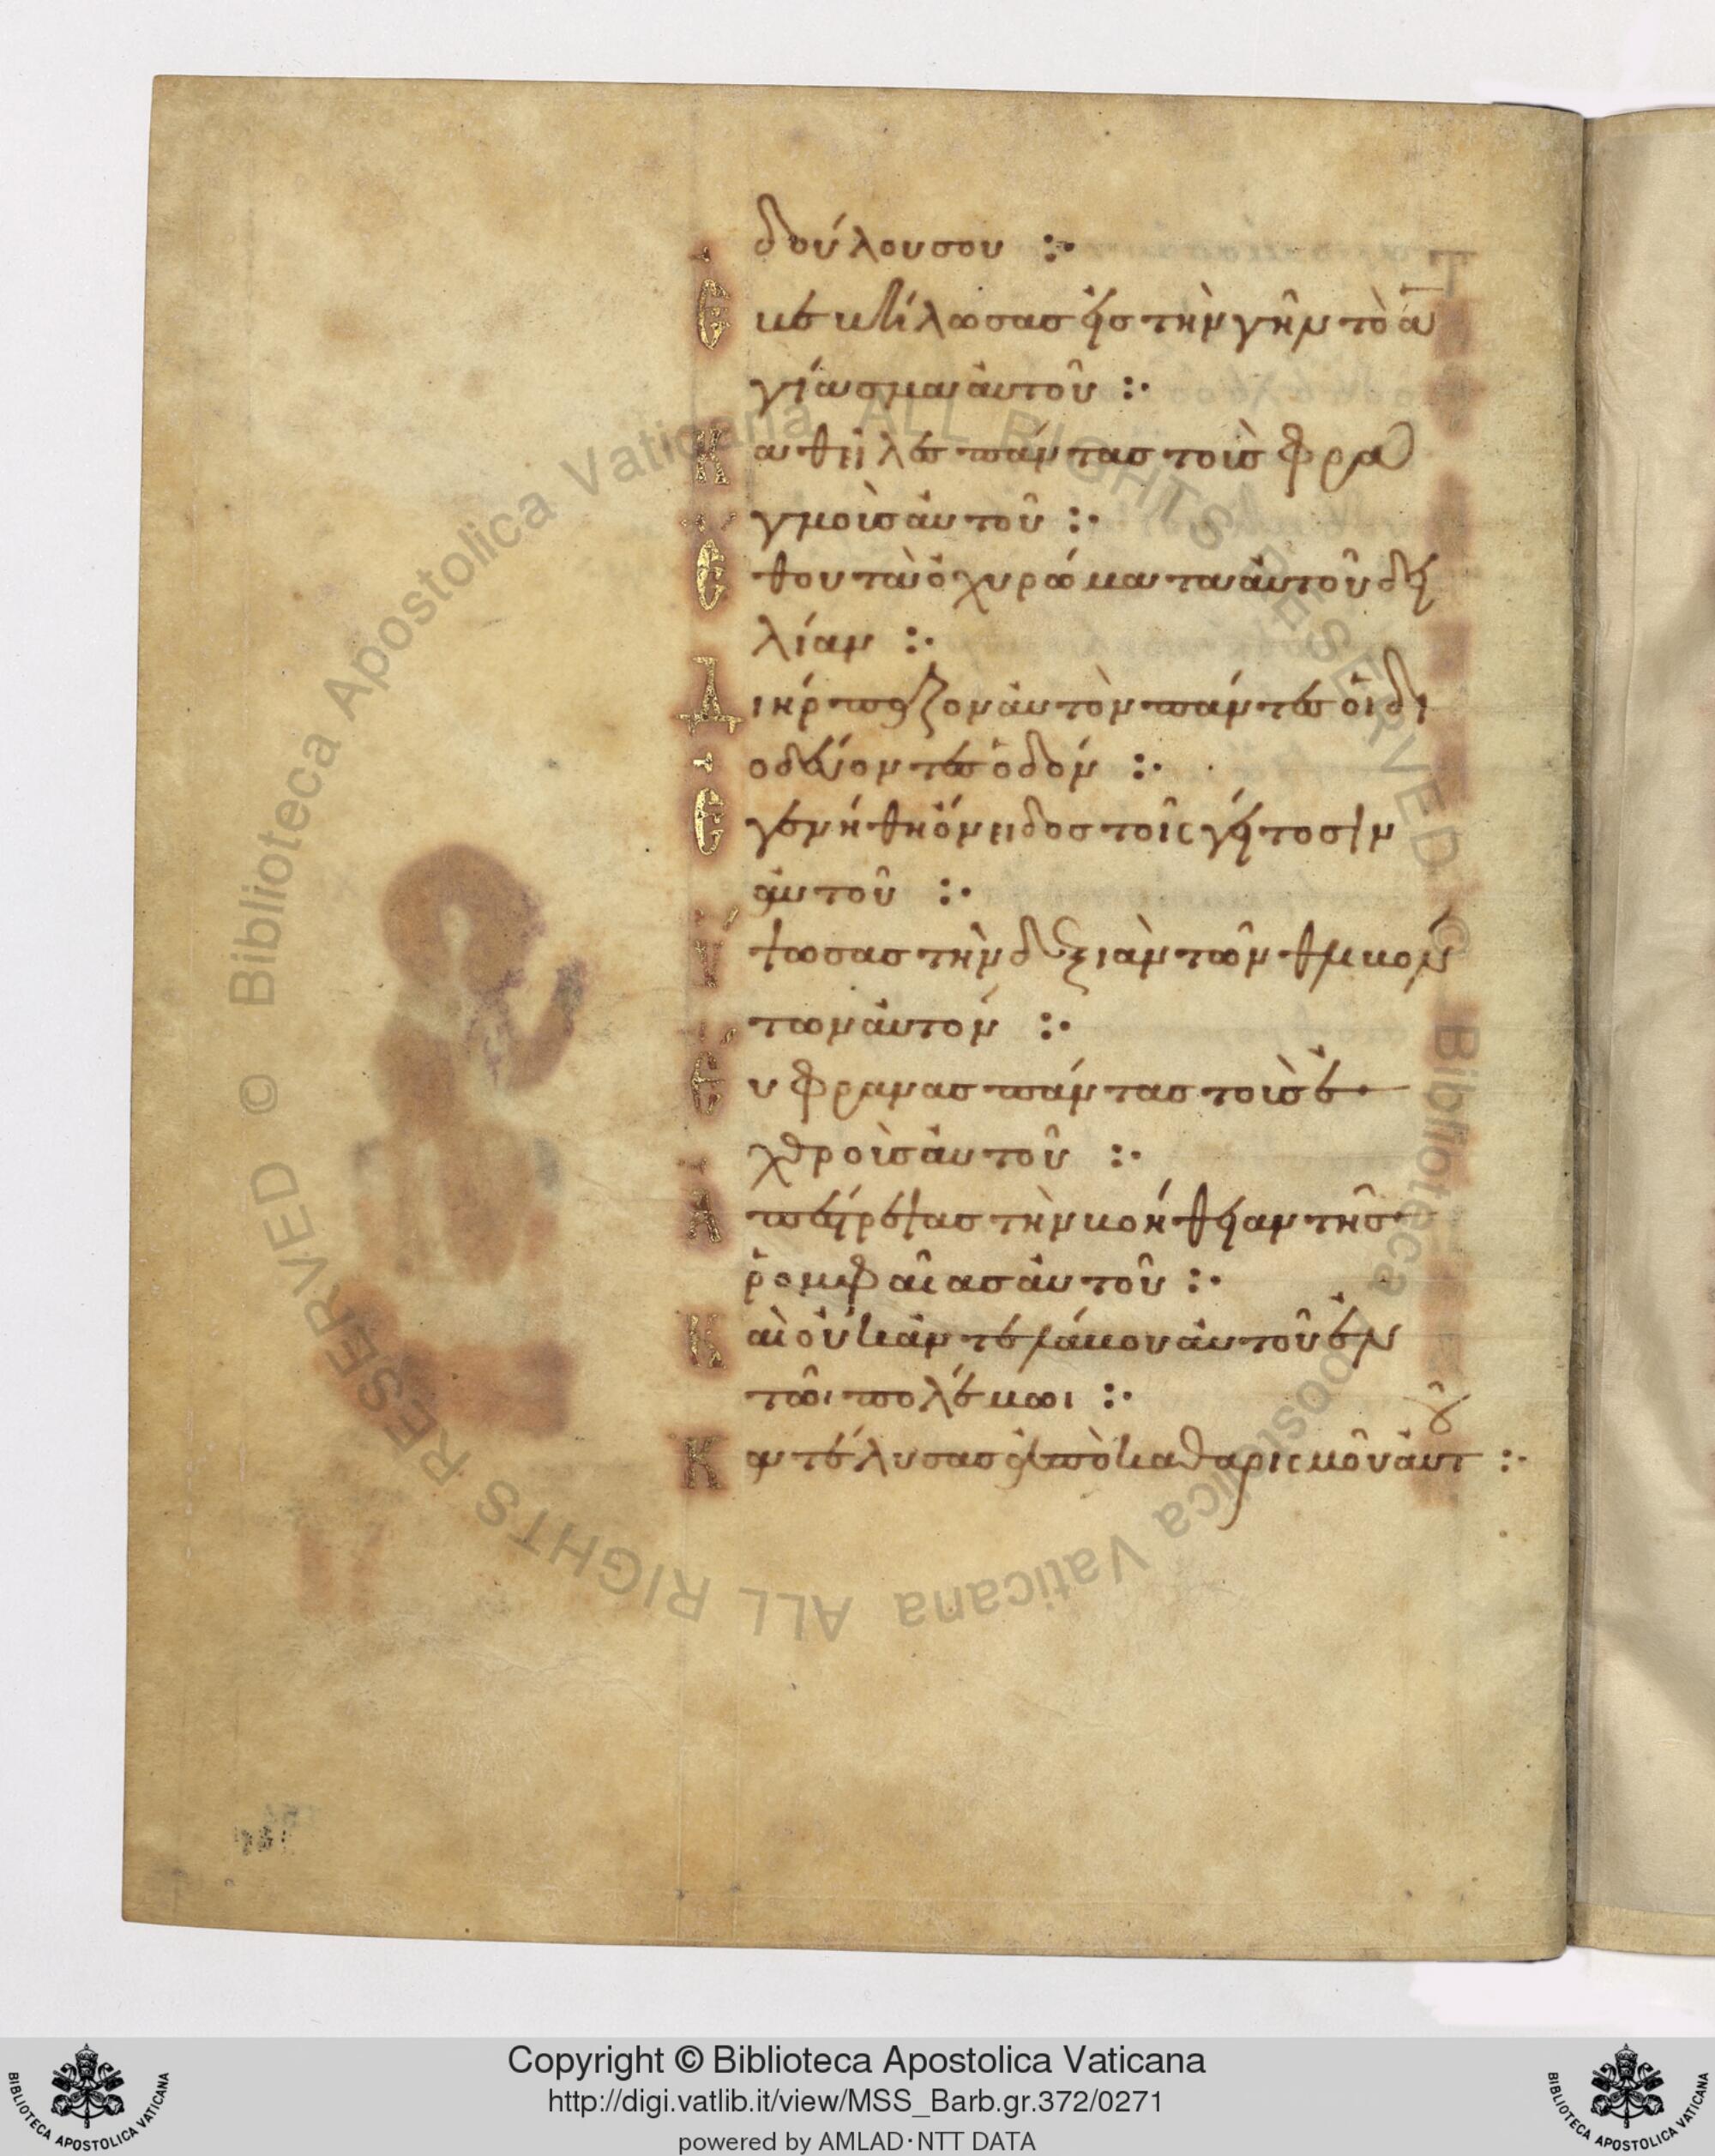 δούλου σου :·
Ἐβεβήλωσας εἰς τὴν γῆν τὸ ἁ
γίασμα αὐτοῦ :·
Καθεῖλες πάντας τοὺς φρα
γμοὺς αὐτοῦ :·
Ἔθου τὰ ὀχυρώματα αὐτοῦ δει
λίαν :·
Διήρπαζον αὐτὸν πάντες οἱ δι
οδεύοντες ὁδόν :·
Ἐγενήθη ὄνειδος τοῖς γείτοσιν
αὐτοῦ :·
Ὕψωσας τὴν δεξιὰν τῶν θλιβόν
των αὐτόν :·
Εὔφρανας πάντας τοὺς ἐ
χθροὺς αὐτοῦ :·
Ἀπέστρεψας τὴν βοήθειαν τῆς
ῥομφαίας αὐτοῦ :·
Καὶ οὐκ ἀντελάβου αὐτοῦ ἐν
τῶι πολέμωι :·
Κατέλυσας ἀπὸ καθαρισμοῦ αὐτοῦ :·
Copyright © Biblioteca Apostolica Vaticana
http://digi.vatlib.it/view/MSS_Barb.gr.372/0271
powered by AMLAD·NTT DATA
BIBLIOTECA APOSTOLICA VATICANA
BIBLIOTECA APOSTOLICA VATICANA
© Biblioteca Apostolica Vaticana ALL RIGHTS RESERVED © Biblioteca Apostolica Vaticana ALL RIGHTS RESERVED